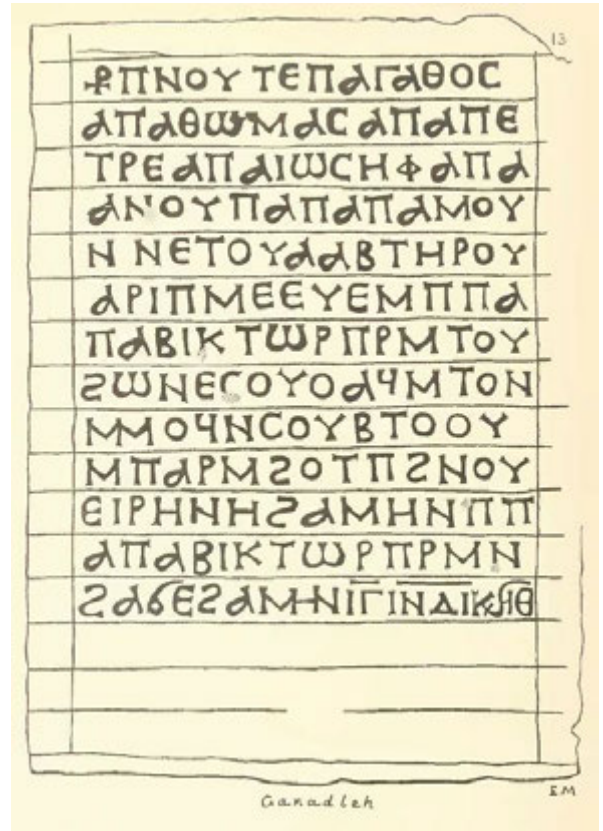 13
⳨ⲠⲚⲞⲨ ⲦⲈⲠⲀⲄⲀⲐⲞⲤ
ⲀⲠⲀⲐⲰⲘⲀⲤ ⲀⲠⲀⲠⲈ
ⲦⲢⲈ ⲀⲠⲀ ⲒⲰⲤⲎⲪ ⲀⲠⲀ
ⲀⲚⲞⲨⲠ ⲀⲠⲀ ⲠⲀⲘⲞⲨ
Ⲛ ⲚⲈⲦⲞⲨⲀⲀⲂ ⲦⲎⲢⲞⲨ
ⲀⲢⲒⲠⲘⲈⲈⲨⲈ ⲘⲠⲠⲀ
ⲠⲀⲂⲒⲔⲦⲰⲢ ⲠⲢⲘⲦⲞⲨ
ϨⲰⲚⲈ ⲤⲞⲨⲞ ⲀϤⲘⲦⲞⲚ
ⲘⲘⲞϤ ⲚⲤⲞⲨⲂⲦⲞⲞⲨ
ⲘⲠⲀⲢⲘϨⲞⲦⲠ ϨⲚⲞⲨ
ⲈⲒⲢⲎⲚⲎ ϨⲀⲘⲎⲚ ⲠⲠ
ⲀⲠⲀⲂⲒⲔⲦⲰⲢ ⲠⲢⲘⲚ
ϨⲀϬⲈ ϨⲀⲘⲎⲚ ⲒⲄ̅ ⲒⲚⲆⲒⲔ
Ganadleh
E.M